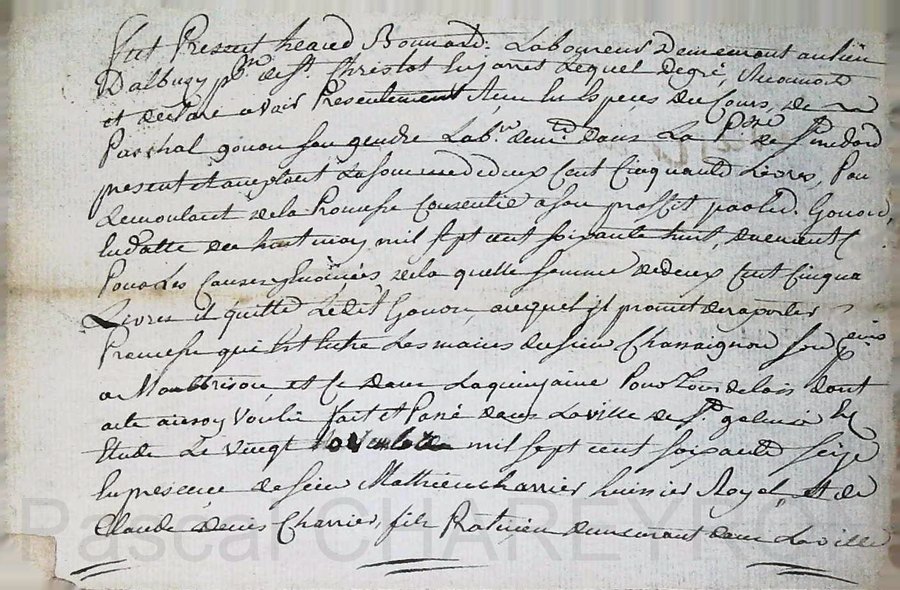 fut Present heand Bonnard. Laboureur Demeurant au lieu
Dalbuzy psse de St. Christot En jarres Lequel de gré, Reconnoit
et declare avoir Presentement Receu En Especes du Cours, de
Paschal gonon son gendre Labr. demt. dans La Psse de St. medard
present et acceptant La somme de deux Cent Cinquante Livres, Pour
Lemontant de la Promesse Consentie a son proffit par led. Gonon,
En datte du huit may mil sept cent soixante huit,
Pour Les Causes y Enoncées, de la quelle somme de deux Cent Cinqua
Livres il quitte Ledit Gonon, auquel il promet de raporter
Promesse qui Est Entre Les mains du sieur Chassaignon
a Montbrison, et Ce dans La quinzaine Pour tous delais dont
acte ainsy Voulu fait et Passé dans La ville de St. galmier En
Etude Le vingt mil sept cent soixante seize
En presence de sieur Mathieu charrier huissier Royal et de
Claude denis Charrier, fils Praticien demeurant dans La ville
Pascal CHAREYRON